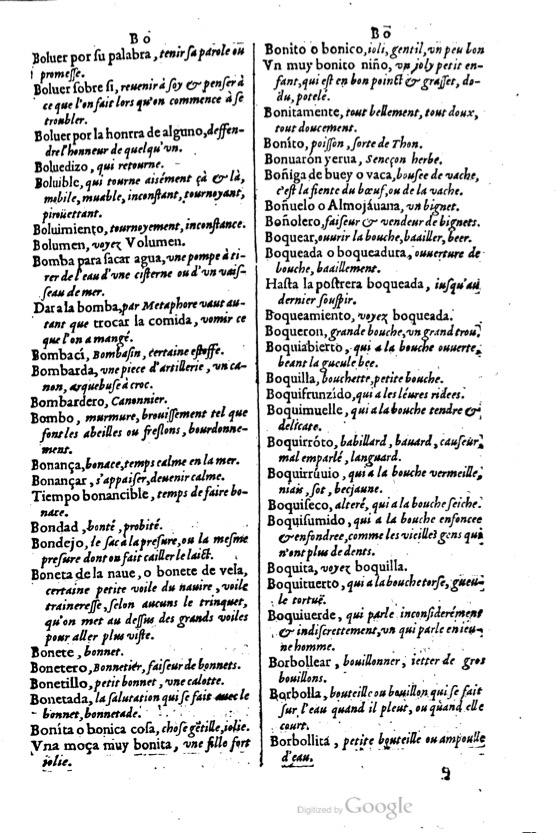 B o
Boluer por su palabra, tenir sa parole ou
promesse.
Boluer sobre si, reuenir à soy & penser à
ce que l'on fait lors qu'on commence à se
troubler.
Boluer por la honrra de alguno, deffen-
dre l'honneur de quelqu'vn.
Boluedizo, qui retourne.
Boluible, qui tourne aisément çà & là,
mobile, muable, inconstant, tournoyant,
pirouettant.
Boluimiento, tournoyement, inconstance.
Bolumen, voyez Volumen.
Bomba para sacar agua, vne pompe à ti-
rer de l'eau d'vne cisterne ou d'vn vais-
seau de mer.
Dar a la bomba, par Metaphore vaut au-
tant que trocar la comida, vomir ce
que l'on a mangé.
Bombací, Bombasin, certaine estoffe.
Bombarda, vne piece d'artillerie, vn ca-
non, arquebuse à croc.
Bombardero, Canonnier.
Bombo, murmure, brouissement tel que
font les abeilles ou freslons, bourdonne-
ment.
Bonança, bonace, temps calme en la mer.
Bonançar, s'appaiser, deuenir calme.
Tiempo bonancible, temps de faire bo-
nace.
Bondad, bonté, probité.
Bondejo, le sac à la presure, ou la mesme
presure dont on fait cailler le laict.
Boneta de la naue, o bonete de vela,
certaine petite voile du nauire, voile
traineresse, selon aucuns le trinquet,
qu'on met au dessus des grands voiles
pour aller plus viste.
Bonete, bonnet.
Bonetero, Bonnetier, faiseur de bonnets.
Bonetillo, petit bonnet, vne calotte.
Bonetada, la salutation qui se fait auec le
bonnet, bonnetade.
Bonita o bonica cosa, chose gētille, iolie.
Vna moça muy bonita, vne fille fort
iolie.
B o
Bonito o bonico, ioli, gentil, vn peu bon
Vn muy bonito niño, vn joly petit en-
fant, qui est en bon poinct & grasset, do-
du, potelé.
Bonitamente, tout bellement, tout doux,
tout doucement.
Boníto, poisson, sorte de Thon.
Bonuarón yerua, Sençcon herbe.
Boñiga de buey o vaca, bousee de vache,
c'est la fiente du bœuf, ou de la vache.
Boñuelo o Almojáuana, vn bignet.
Boñolero, faiseur & vendeur de bignets.
Boquear, ouurir la bouche, baailler, beer.
Boqueada o boqueadura, ouuerture de
bouche, baaillement.
Hasta la postrera boqueada, iusqu'au
dernier souspir.
Boqueamiento, voyez boqueada.
Boqueron, grande bouche, vn grand trou.
Boquiabierto, qui a la bouche ouuerte,
beant la gueule bee.
Boquilla, bouchette, petite bouche.
Boquifrunzído, qui a les léures ridees.
Boquimuelle, qui a la bouche tendre &
delicate.
Boquirróto, babillard, bauard, causeur,
mal emparlé, languard.
Boquirrúuio, qui a la bouche vermeille,
niais, sot, becjaune.
Boquiseco, alteré, qui a la bouche seiche.
Boquisumido, qui a la bouche enfoncee
& enfondree, comme les vieilles gens qui
n'ont plus de dents.
Boquita, voyez boquilla.
Boquituerto, qui a la bouche torse, gueu-
le tortuë.
Boquiuerde, qui parle inconsiderément
& indiscrettement, vn qui parle en ieu-
ne homme.
Borbollear, bouillonner, ietter de gros
bouillons.
Borbolla, bouteille ou bouillon qui se fait
sur l'eau quand il pleut, ou quand elle
court.
Borbollitá, petite bouteille ou ampoulle
d'eau.
9
Digitized by Google